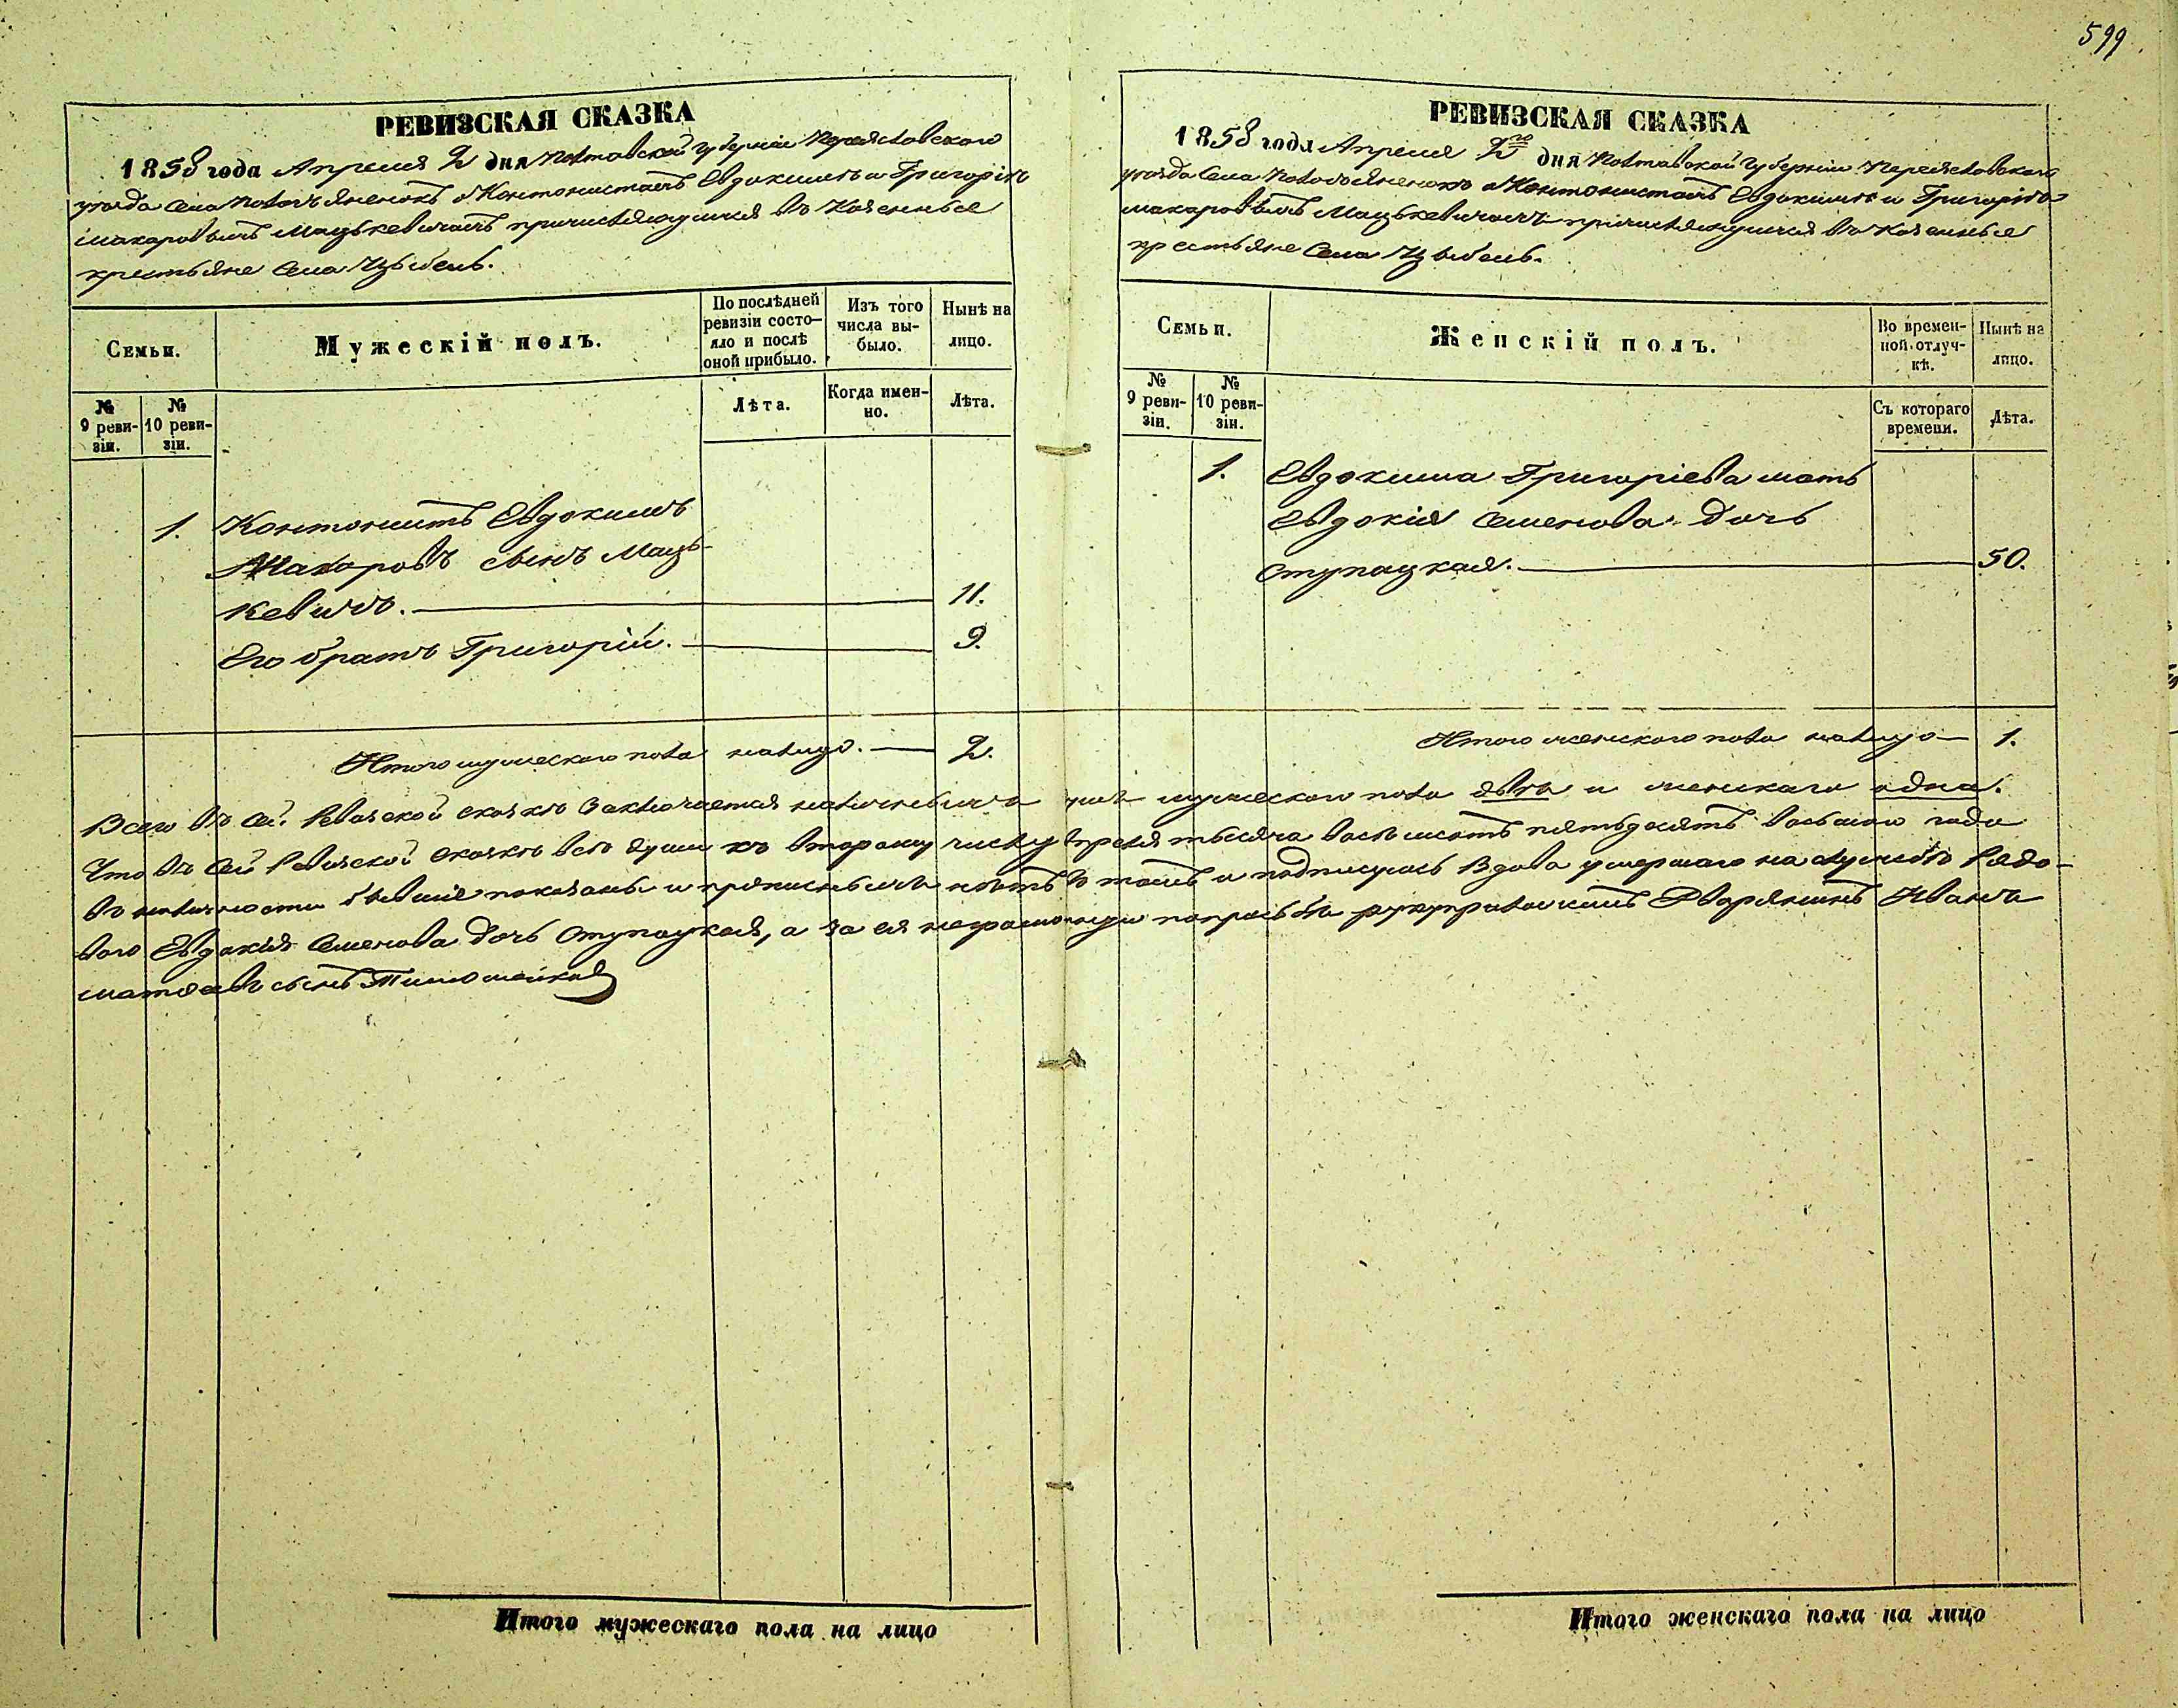 599.
РЕВИЗСКАЯ СКАЗКА
1858 года Апреля 2 дня Полтавской губерніи Переяславскаго
уезда Села Положаненокъ о Кантонистахъ Евдокиме и Григоріе
Макаровыхъ Мацькевичахъ причисляющихся въ Казенные
крестьяне Села Цыбель.
Семьи.
Мужескій полъ.
По послѣдней ревизіи состо-яло и послѣ оной прибыло.
Изъ того числа вы-было.
Нынѣ на лицо.
№ 9 реви-зіи.
№ 10 реви-зіи.
Лѣта.
Когда имен-но.
Лѣта.
1. Кантонистъ Евдокимъ
Макаровъ сынъ Маць-
кевичъ. 11.
Его братъ Григорій. 9.
Итого мужескаго пола налицо. 2.
РЕВИЗСКАЯ СКАЗКА
1858 года Апреля 2го дня Полтавской губерніи Переяславскаго
уезда Села о Кантонистахъ Евдокиме и Григоріе
Макаровыхъ Мацькевичахъ причисляющихся въ Казенные
крестьяне Села Цыбель.
Семьи.
Женскій полъ.
Во времен-ной отлуч-кѣ.
Нынѣ на лицо.
№ 9 реви-зіи.
№ 10 реви-зіи.
Съ котораго времени.
Лѣта.
1. Евдокима Григоріева мать
Евдокія Семенова дочь
Ступацкая. 50.
Итого женскаго пола налицо 1.
Всего въ сей Ревизской сказке заключается наличныхъ мужескаго пола два и женскаго одна.
Что въ сей Ревизской сказке все души къ второму числу Апреля тысяча восемьсотъ пятьдесятъ восьмаго года
въ наличности бывшіе показаны и прописныхъ нетъ въ томъ и подписуюсь Вдова умершаго на службе Рядо-
вого Евдокія Семенова дочь Ступацкая, а за ея неграмотную по прозьбе руку приложилъ Дворянинъ Иванъ
Матвеевъ сынъ
Итого мужескаго пола на лицо
Итого женскаго пола на лицо